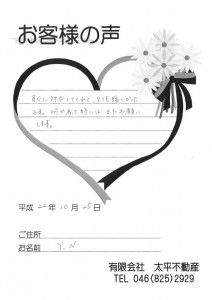 お客様の声
すぐに対応してくれて、とても嬉しかった
です。何かあった時には、またお願い
します。
平成 22年 10月 25日
ご住所
お名前 Y.N
有限会社 太平不動産
TEL 046(825)2929